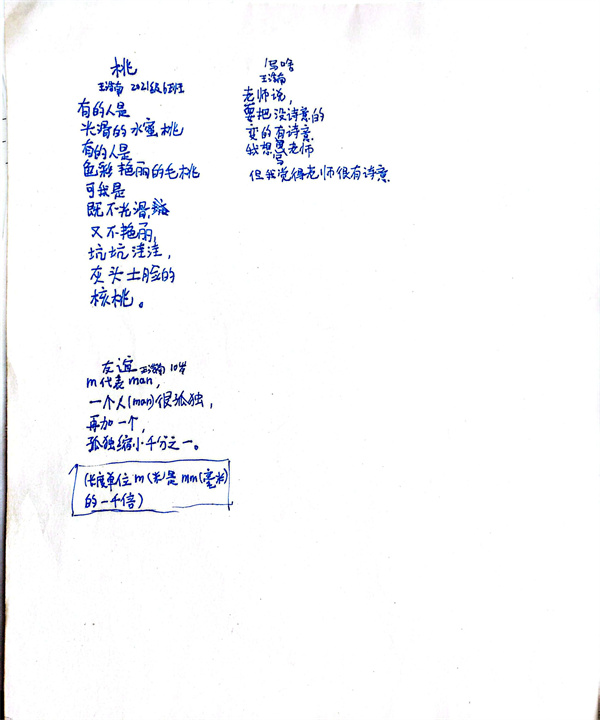 桃
王浩南 2021级6班
有的人是
光滑的水蜜桃
有的人是
色彩艳丽的毛桃
可我是
既不光滑,
又不艳丽,
坑坑洼洼,
灰头土脸的
核桃。
友谊 王浩南 10岁
m代表man,
一个人(man)很孤独,
再加一个,
孤独缩小千分之一。
(长度单位m(米)是mm(毫米)
的一千倍)
写啥
王浩南
老师说,
要把没诗意的
变的有诗意
我想写老师
但我觉得老师很有诗意